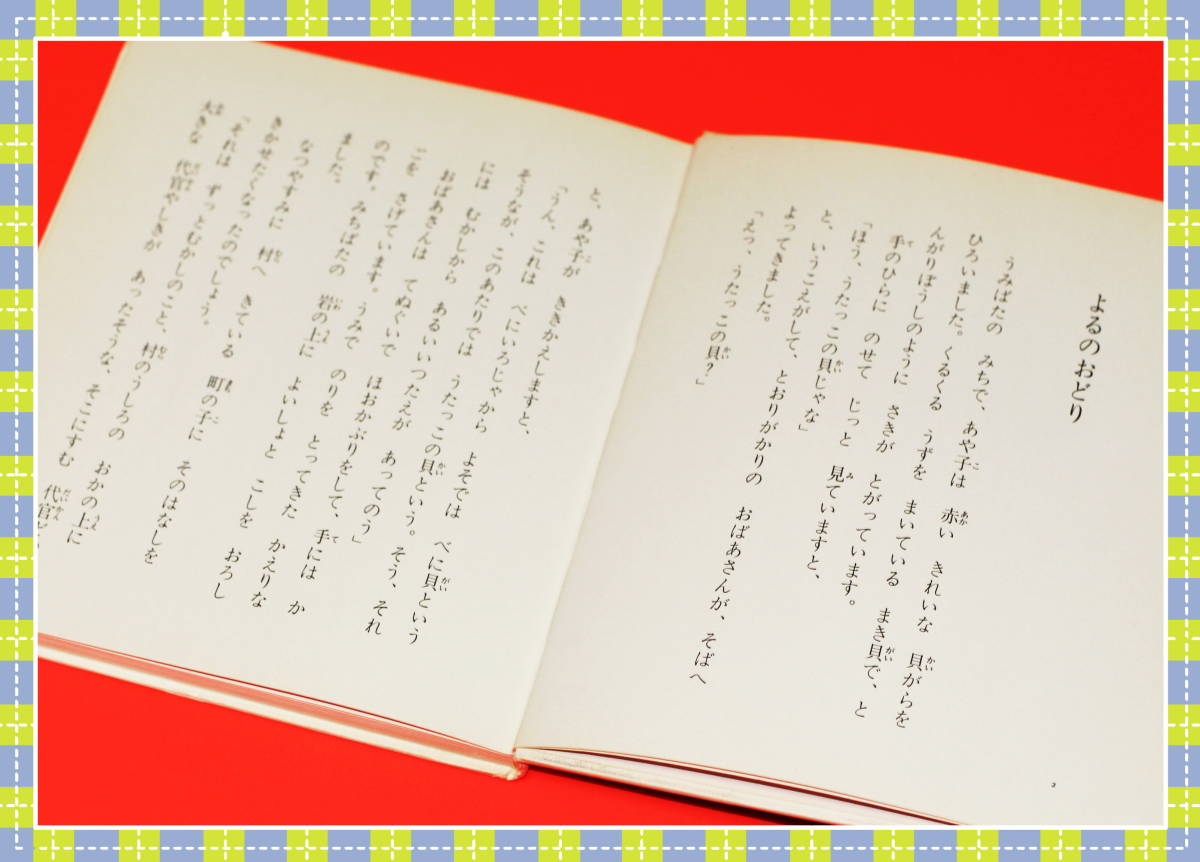 よるのおどり
うみばたの　みちで、あや子は　赤い　きれいな　貝がらを
ひろいました。くるくる　うずを　まいている　まき貝で、と
んがりぼうしのように　さきが　とがっています。
手のひらに　のせて　じっと　見ていますと、
「ほう、うたっこの貝じゃな」
と、いうこえがして、とおりがかりの　おばあさんが、そばへ
よってきました。
「えっ、うたっこの貝？」
3
と、あや子が　ききかえしますと、
「うん、これは　べにいろじゃから　よそでは　べに貝という
そうなが、このあたりでは　うたっこの貝という。そう、それ
には　むかしから　あるいいつたえが　あってのう」
おばあさんは　てぬぐいで　ほおかぶりをして、手には　か
ごを　さげています。うみで　のりを　とってきた　かえりな
のです。みちばたの　岩の上に　よいしょと　こしを　おろし
ました。
なつやすみに　村へ　きている　町の子に　そのはなしを
きかせたくなったのでしょう。
「それは　ずっとむかしのこと、村のうしろの　おかの上に
大きな　代官やしきが　あったそうな、そこにすむ　代官